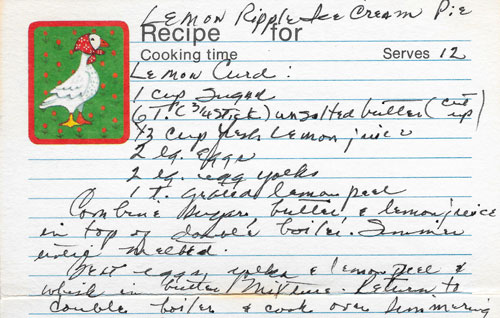 Lemon Ripple Ice Cream Pie
Recipe for
Cooking time Serves 12
Lemon Curd:
1 cup Sugar
6 T. (3/4 Stick) unsalted butter (cut up)
1/3 cup fresh lemon juice
2 lg. eggs
2 lg. egg yolks
1 t. grated lemon peel
Combine sugar, butter, & lemon juice
in top of double boiler. Simmer
until melted.
Beat eggs, yolks & lemon peel &
whisk in butter mixture. Return to
double boiler & cook over simmering